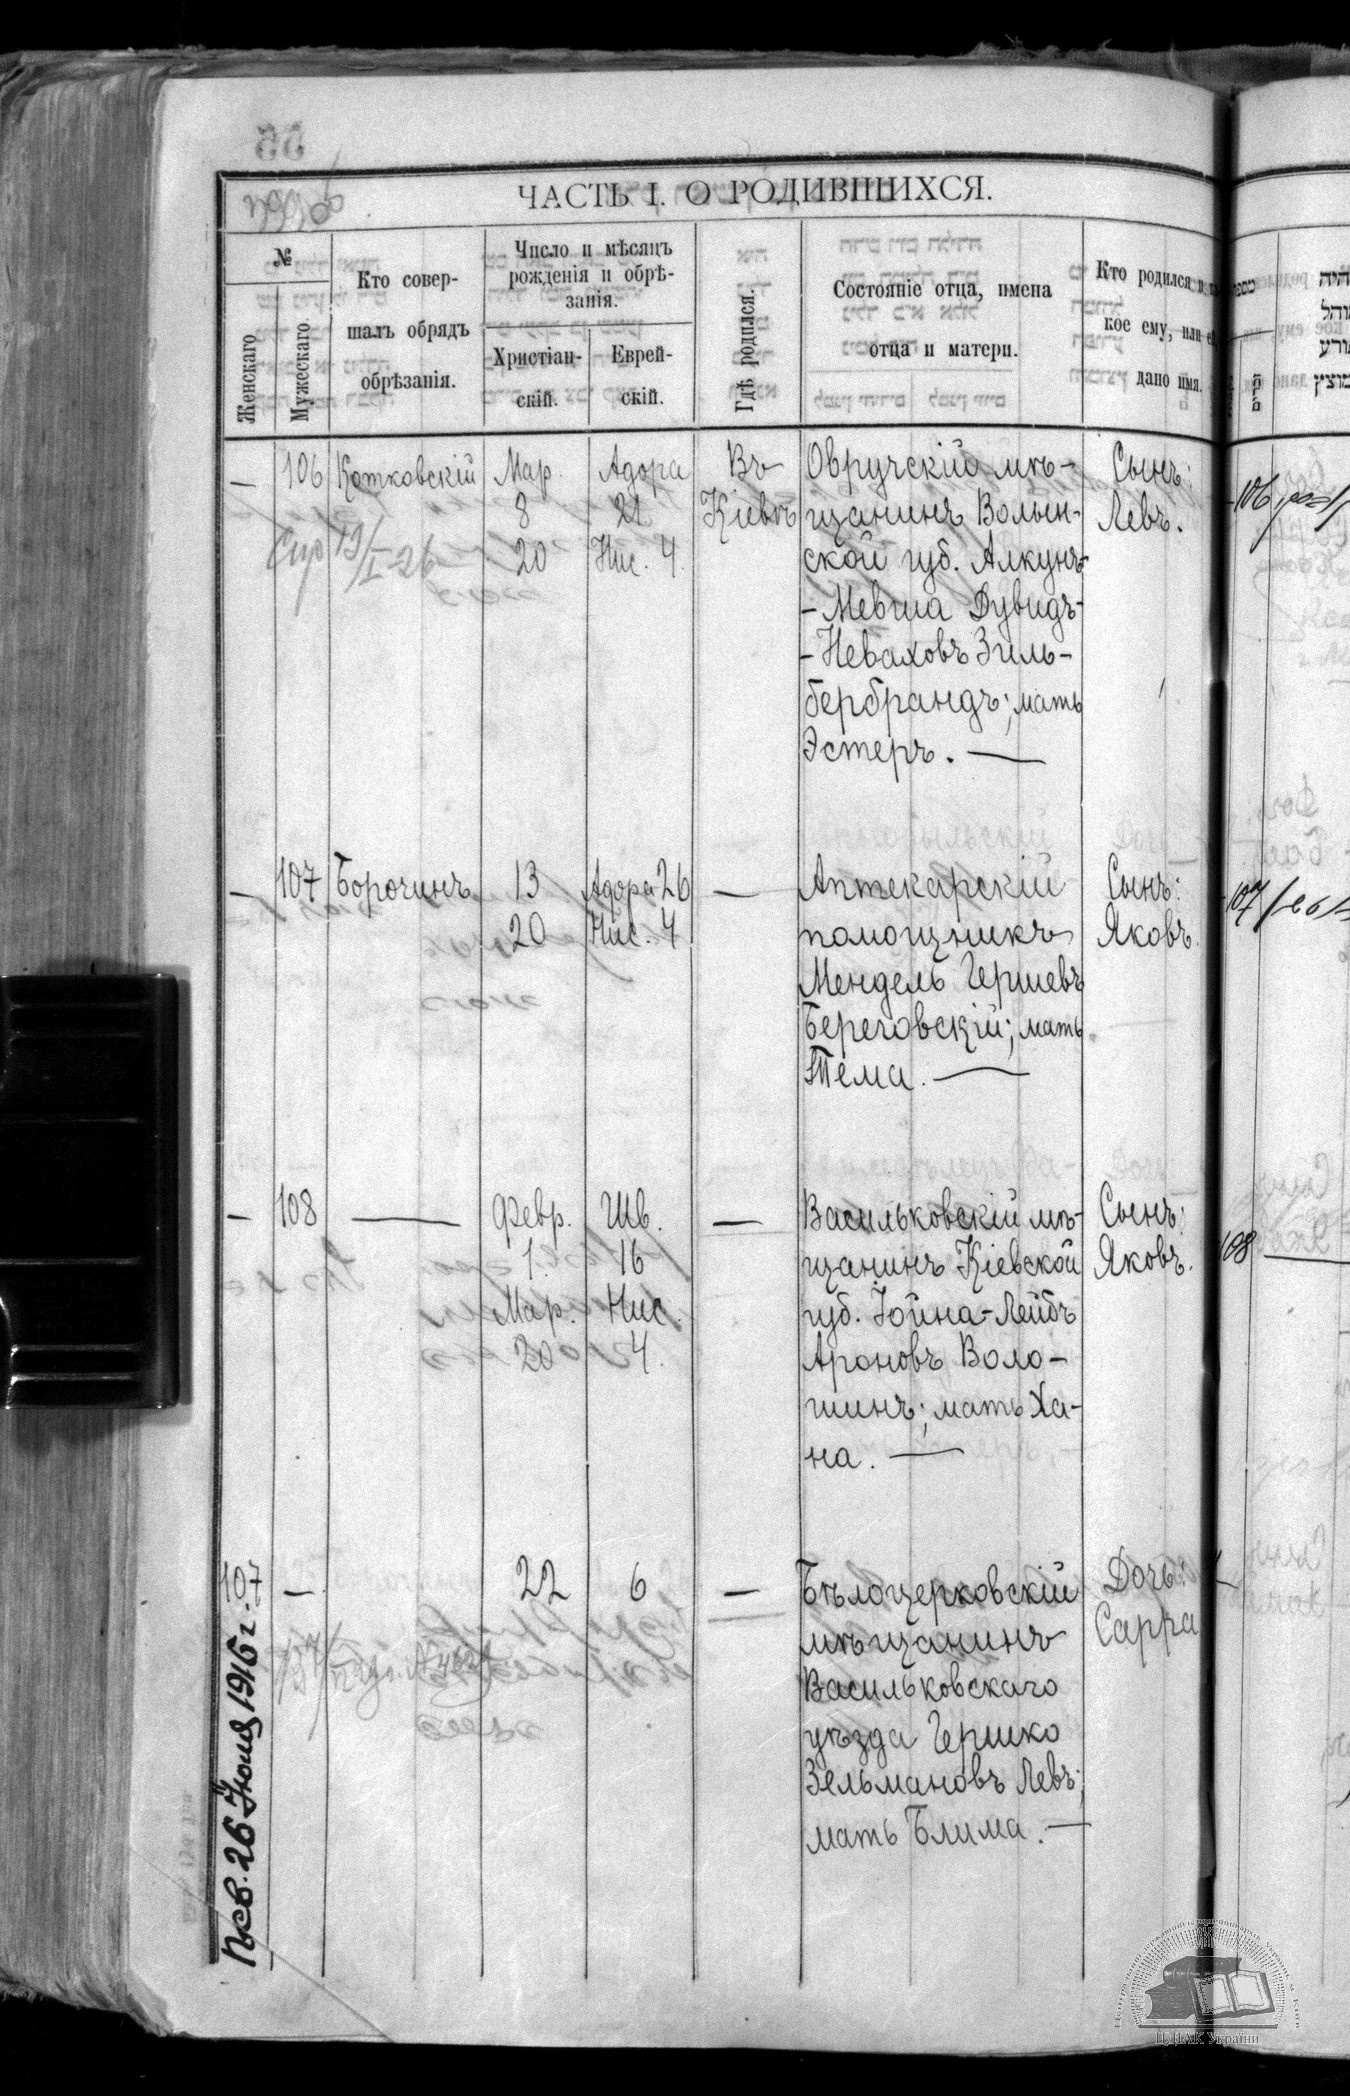 ЧАСТЬ I. О РОДИВШИХСЯ.
№
Женскаго
Мужескаго
Кто совер-
шалъ обрядъ
обрѣзанія.
Число и мѣсяцъ
рожденія и обрѣ-
занія.
Христіан-
скій.
Еврей-
скій.
Гдѣ родился.
Состояніе отца, имена
отца и матери.
Кто родился и
кое ему, или ей
дано имя.
—
106
Котковскій
Мар.
8
20
Адора
21
Нис. 4.
Въ
Кіевѣ
Овручскій мѣ-
щанинъ Волын-
ской губ. Алкунъ-
-Мевша Дувидъ-
-Неваховъ Зиль-
бербрандъ; мать
Эстеръ. —
Сынъ:
Левъ.
—
107
Борочинъ
13
20
Адора 26
Нис. 4
—
Аптекарскій
помощникъ
Мендель Гершевъ
Береговскій; мать
Тема. —
Сынъ:
Яковъ.
—
108
—
Февр.
1.
Мар.
20
Шв.
16
Нис.
4.
—
Васильковскій мѣ-
щанинъ Кіевской
губ. Іойна-Лейбъ
Ароновъ Воло-
шинъ; мать Ха-
на. —
Сынъ:
Яковъ.
107
—
22
6
—
Бѣлоцерковскій
мѣщанинъ
Васильковскаго
уѣзда Гершко
Зельмановъ Левъ;
мать Блима. —
Дочь:
Сарра
26 Іюня 1915 г.
106
107
108
ЦДІАК України